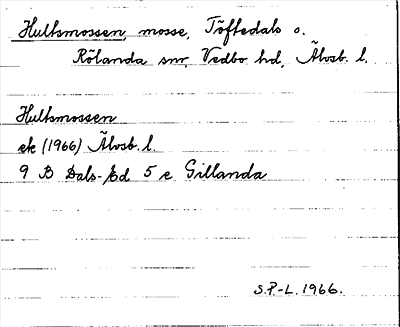 Hultsmossen, mosse, Töftedals o.
Rölanda snr, Vedbo hd, Älvsb. l.
Hultsmossen
ek (1966) Älvsb. l.
9 B Dals-Ed 5 e Gillanda
S.P.-L. 1966.